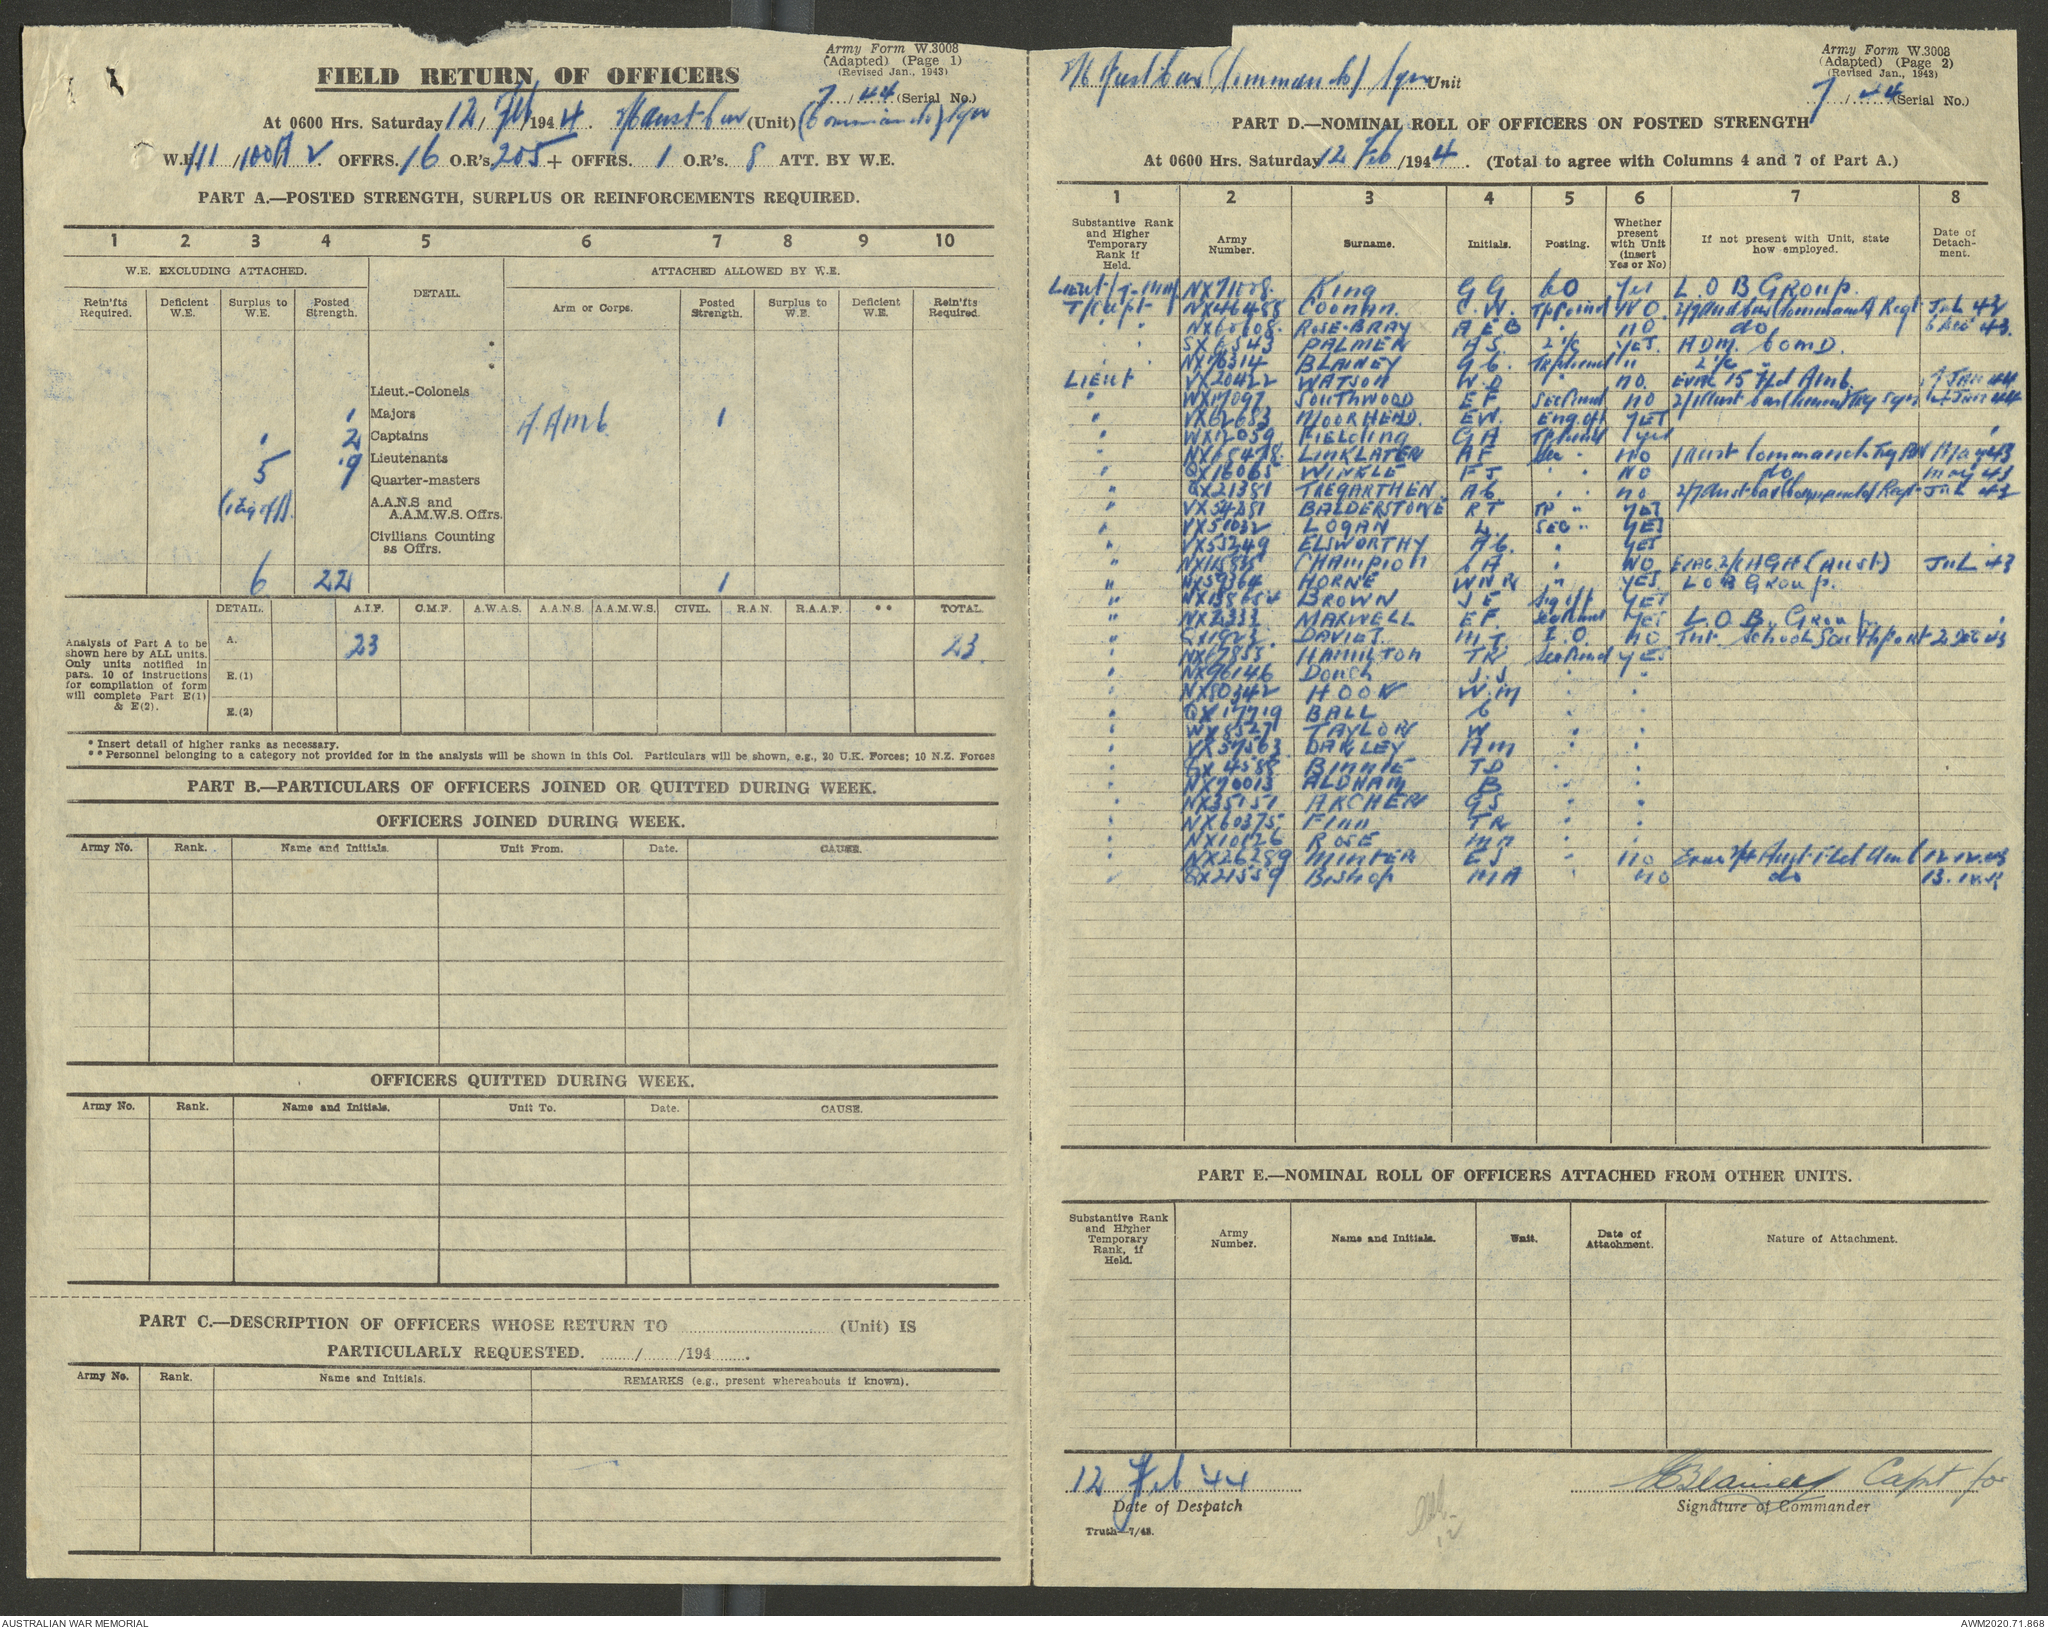 Army Form W.3008
(Adapted) (Page 1)
(Revised Jan., 1943)
FIELD RETURN OF OFFICERS
7/44 (Serial No.)
At 0600 Hrs. Saturday 12/Feb/1944. Aust Cav (Unit) (Commando) Sqn
W.E. 111/100A V2 OFFRS. 16 O.R's. 205 + OFFRS. 1 O.R's. 8 ATT. BY W.E.
PART A.—POSTED STRENGTH, SURPLUS OR REINFORCEMENTS REQUIRED.
1 2 3 4 5 6 7 8 9 10
W.E. EXCLUDING ATTACHED. DETAIL. ATTACHED ALLOWED BY W.E.
Rein'fts Required. Deficient W.E. Surplus to W.E. Posted Strength. Arm or Corps. Posted Strength. Surplus to W.E. Deficient W.E. Rein'fts Required.
*
*
Lieut.-Colonels
1 Majors F. Amb 1
1 2 Captains
5 19 Lieutenants
Quarter-masters
(1 sig off). A.A.N.S and A.A.M.W.S. Offrs.
Civilians Counting as Offrs.
6 22 1
DETAIL. A.I.F. C.M.F. A.W.A.S. A.A.N.S. A.A.M.W.S. CIVIL. R.A.N. R.A.A.F. ** TOTAL.
Analysis of Part A to be shown here by ALL units. Only units notified in para. 10 of instructions for compilation of form will complete Part E(1) & E(2).
A. 23 23
E.(1)
E.(2)
* Insert detail of higher ranks as necessary.
** Personnel belonging to a category not provided for in the analysis will be shown in this Col. Particulars will be shown, e.g., 20 U.K. Forces; 10 N.Z. Forces
PART B.—PARTICULARS OF OFFICERS JOINED OR QUITTED DURING WEEK.
OFFICERS JOINED DURING WEEK.
Army No. Rank. Name and Initials. Unit From. Date. CAUSE.
OFFICERS QUITTED DURING WEEK.
Army No. Rank. Name and Initials. Unit To. Date. CAUSE.
PART C.—DESCRIPTION OF OFFICERS WHOSE RETURN TO .......... (Unit) IS
PARTICULARLY REQUESTED. ......./......./194.......
Army No. Rank. Name and Initials. REMARKS (e.g., present whereabouts if known).
Army Form W.3008
(Adapted) (Page 2)
(Revised Jan., 1943)
2/6 Aust Cav (Commando) Sqn Unit
7/44 (Serial No.)
PART D.—NOMINAL ROLL OF OFFICERS ON POSTED STRENGTH
At 0600 Hrs. Saturday 12 Feb/1944. (Total to agree with Columns 4 and 7 of Part A.)
1 2 3 4 5 6 7 8
Substantive Rank and Higher Temporary Rank if Held. Army Number. Surname. Initials. Posting. Whether present with Unit (insert Yes or No) If not present with Unit, state how employed. Date of Detachment.
Lieut/T-Maj King G G CO Yes L.O B Group.
T/Capt NX46488 Coonan. C.W. Tp Comd NO. 2/7 Aust Cav (Commando) Regt Jul 43
" " ROSE-BRAY A E B " no do 6 Dec 43.
" " SX6543 PALMER A S. 2 i/c YES. ADM. Comd.
" " NX76314 BLAINEY G C. Tp Comd " 2 i/c "
LIEUT VX20422 WATSON W.D " no. Evac 15 Fld Amb. 9 JAN 44
" WX17097 SOUTHWOOD E F Sec Comd no
" VX62683 MOORHEAD. E W. Eng Off YES
" WX12059 FIELDING G A Tp Comd Yes
" NX65478 LINKLATER A F Sec " no 1 Aust Commando Trg BN May 43
" QX16065 WINKLE F J " " NO do May 43
" QX21381 TREGARTHEN. A C " " no 2/7 Aust Cav (Commando) Regt Jul 43
" BALDERSTONE R T Tp " YES
" VX51032 LOGAN L. SEC " YES
" VX53249 ELSWORTHY A C. " YES
" CHAMPION A " NO Evac 2/1 HGH (Aust) Jul 43
" NX59364 HORNE W N R " YES L O B Group.
" BROWN J E Sig off YES
" NX2333 MAXWELL E F. Sec Comd YES L.O.B. Group
" DAVIES. M T I.O. no Int. School Southport 2 Dec 43
" NX67853 HAMILTON T R Sec Comd YES
" NX96146 Dench J.J " "
" NX80342 HOOK W.M " "
" QX17719 BALL C " "
" WX8527 TAYLOR W " "
" VX37563 OAKLEY A M " "
" QX4588 BINNIE T D " "
" NX70013 ALDHAM B " "
" NX35151 ARCHER G S " "
" NX60375 Finn T R " "
" NX10126 ROSE M N " "
" NX26289 MINTER E J " no Evac 2/4 Aust Fld Amb 12.12.43
" QX21559 Bishop M A " no do 13.12.43
PART E.—NOMINAL ROLL OF OFFICERS ATTACHED FROM OTHER UNITS.
Substantive Rank and Higher Temporary Rank, if Held. Army Number. Name and Initials. Unit. Date of Attachment. Nature of Attachment.
12 Feb '44 GBlainey Capt for
Date of Despatch Signature of Commander
Truth—7/43.
AUSTRALIAN WAR MEMORIAL AWM2020.71.868